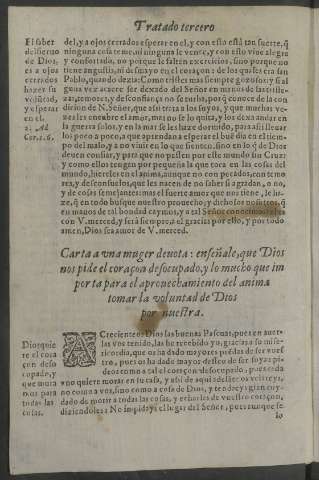 Tratado tercero
El saber
del sieruo
de Dios,
es a ojos
cerrados
hazer su
volũtad,
y esperar
en el.
2. Ad
Cor. 1. 6.
del, y a ojos cerrados esperar en el, y con esto està tan fuerte, q̃
ninguna cosa teme, ni ninguna le vence, y con esto viue alegre
y confortado, no porque le faltẽ exercicios, sino porque no
tiene angustia, ni desmayo en el coraçon: de los quales era san
Pablo, quando dezia: Como tristes mas siempre gozosos: y si al
guna vez acaece ser dexado del Señor en manos de las triste-
zas, temores, y desconfianças, no se turba, porq̃ conoce de la con
dicion de N. Señor, que assi trata a los suyos, y que muchas ve-
zes les encubre el amor, mas no se lo quita, y los dexa andar en
la guerra solos, y en la mar se les haze dormido, para assi lleuar
los poco a poco, a que aprendan a esperar el buẽ dia en el tiem-
po del malo, y a no viuir en lo que sienten, sino en lo q̃ de Dios
deuen confiar, y para que no passen por este mundo sin Cruz:
y como ellos tengan por pequeña la que toca en las cosas del
mundo, hiereles en el anima, aunque no con pecados, con temo
res, y desconfianças, que les nacen de no saber si agradan, o no,
y de cosas semejantes: mas el fuerte amor que nos tiene, le ha-
ze, q̃ en todo busque nuestro prouecho, y dichosos nosotros, q̃
en manos de tal bondad caymos, y a tal Señor conocemos,
con V. merced, y serà siempre el gracias por ello, y por todo
amen, Dios sea amor de V. merced.
Carta a vna muger deuota: enseñale, que Dios
nos pide el coraçon desocupado, y lo mucho que im
porta para el aprouechamiento del anima
tomar la voluntad de Dios
por nuestra.
Dios quie
re el cora
çon deso
cupado, y
que mora
nos para
todas las
cosas.
ACreciente Dios las buenas Pascuas, pues en auer-
las vos tenido, las he recebido yo, gracias a su mise-
ricordia, que os ha dado mayores prẽdas de ser vues
tro, pues os ha dado mayor desseo de ser suya: pi-
deos como a tal el coraçon desocupado, pues nada
no quiere morar en su casa, y assi de aqui adelante os vestireys,
no como a vos, sino como a cosa de Dios, y tendreys gran cuy-
dado de morir a todas las cosas, y echarlas de vuestro coraçon,
diziendoles: No impidays el lugar del Señor, pues aunque se
lo